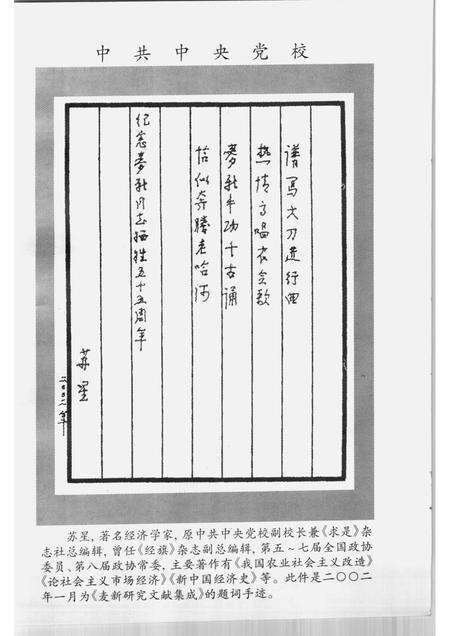 中共中央党校
谱写大刀进行曲
热情高唱农会歌
麦新丰功千古诵
恰似奔腾老哈河
纪念麦新同志牺牲五十五周年
苏星
二〇〇二年
苏星，著名经济学家，原中共中央党校副校长兼《求是》杂
志社总编辑，曾任《红旗》杂志副总编辑，第五～七届全国政协
委员、第八届政协常委，主要著作有《我国农业社会主义改造》
《论社会主义市场经济》《新中国经济史》等。此件是二〇〇二
年一月为《麦新研究文献集成》的题词手迹。